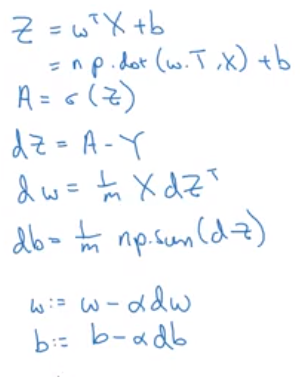 Z = wᵀX + b
= np.dot(w.T, X) + b
A = σ(Z)
dZ = A - Y
dw = 1/m X dZᵀ
db = 1/m np.sum(dZ)
w := w - αdw
b := b - αdb